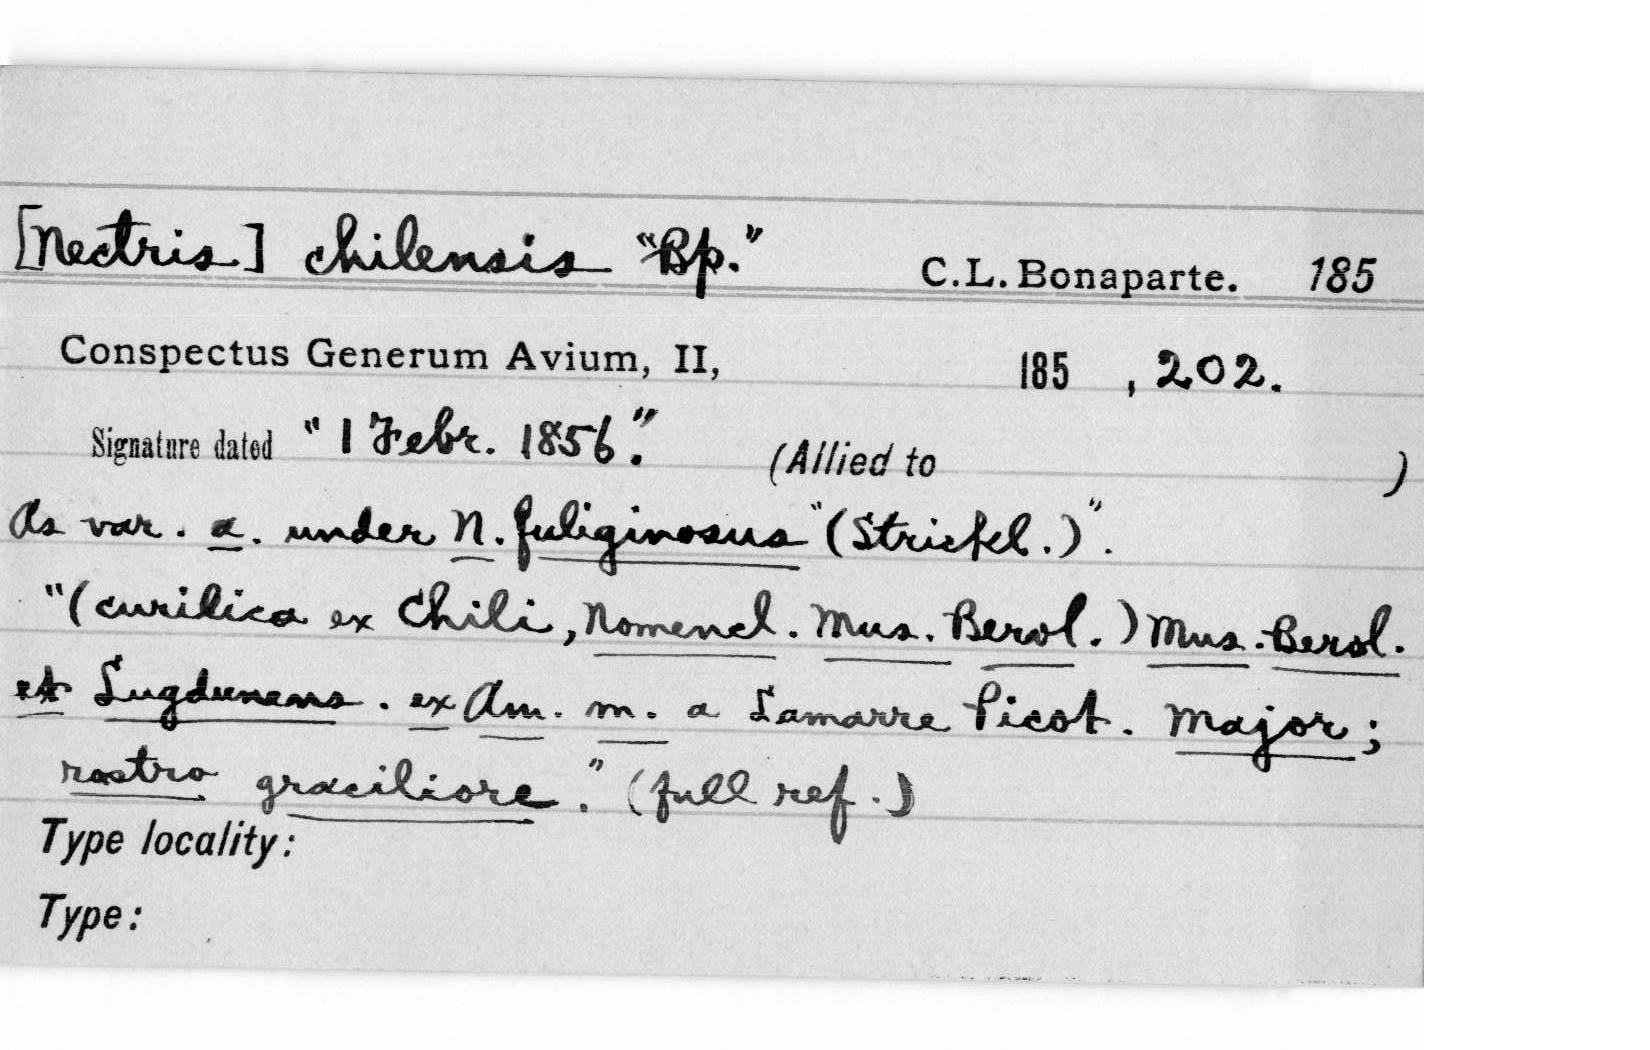 [Nectris] chilensis "Bp." C.L. Bonaparte. 185
Conspectus Generum Avium, II, 185 , 202.
Signature dated "1 Febr. 1856". (Allied to )
As var. a. under N. fuliginosus "(Strickl.)".
"(curilica ex Chili, Nomencl. Mus. Berol.) Mus. Berol.
et Lugdunens. ex Am. m. a Lamarre Picot. Major;
rostro graciliore." (full ref.)
Type locality:
Type: